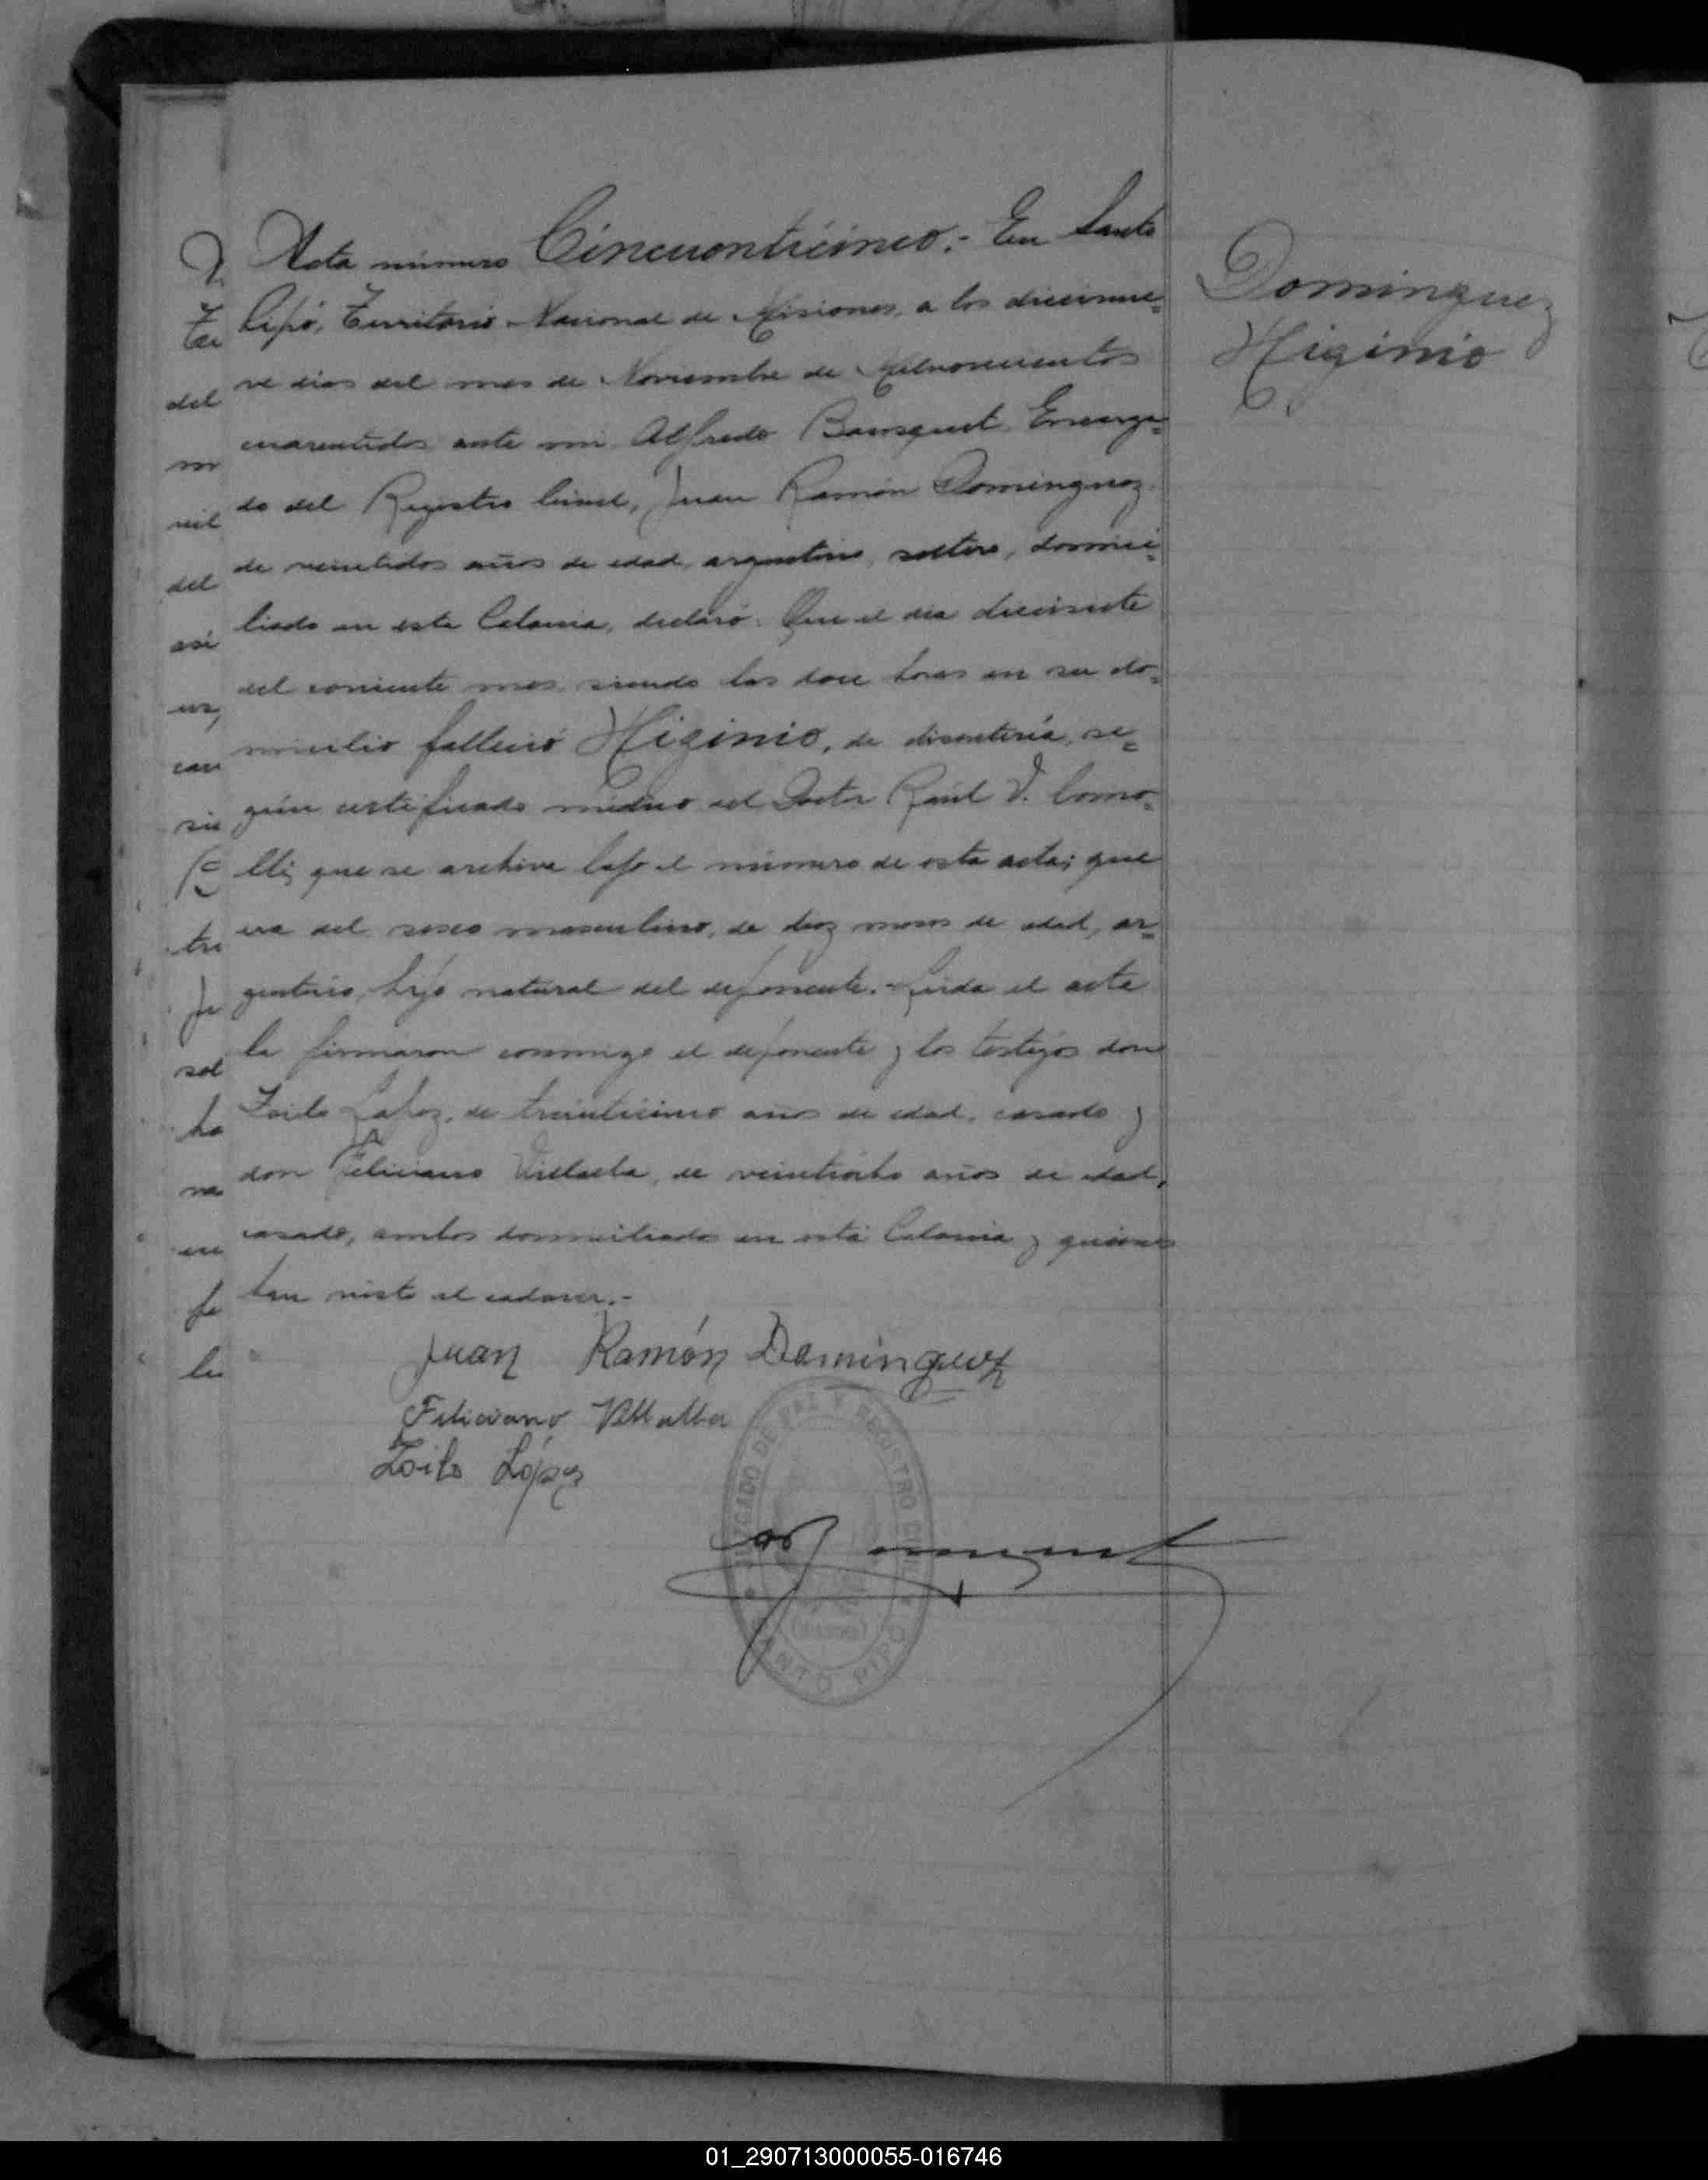 Acta número Cincuenticinco.- En Santo
Pipó, Territorio Nacional de Misiones, a los diecinue=
ve dias del mes de Noviembre de Milnovecientos
cuarentidos ante mi Alfredo Bousquet Encarga=
do del Registro Civil, Juan Ramón Dominguez
de veintidos años de edad, argentino, soltero, domici=
liado en esta Colonia, declaró: Que el dia diecisiete
del corriente mes, siendo las doce horas en su do=
micilio falleció Higinio, de disentería, se=
gún certificado médico del Doctor Raúl V. Como=
lli, que se archiva bajo el número de esta acta; que
era del sexo masculino, de diez meses de edad, ar=
gentino, hijo natural del deponente.- Leida el acta
la firmaron conmigo el deponente y los testigos don
Zoilo Lopez, de treinticinco años de edad, casado y
don Feliciano Villalba, de veintiocho años de edad,
casado, ambos domiciliados en esta Colonia y quienes
han visto el cadaver.-
Dominguez
Higinio
Juan Ramón Dominguez
Feliciano Villalba
Zoilo López
JUZGADO DE PAZ Y REGISTRO CIVIL
SANTO PIPÓ
del
del
asi
sol
01_290713000055-016746